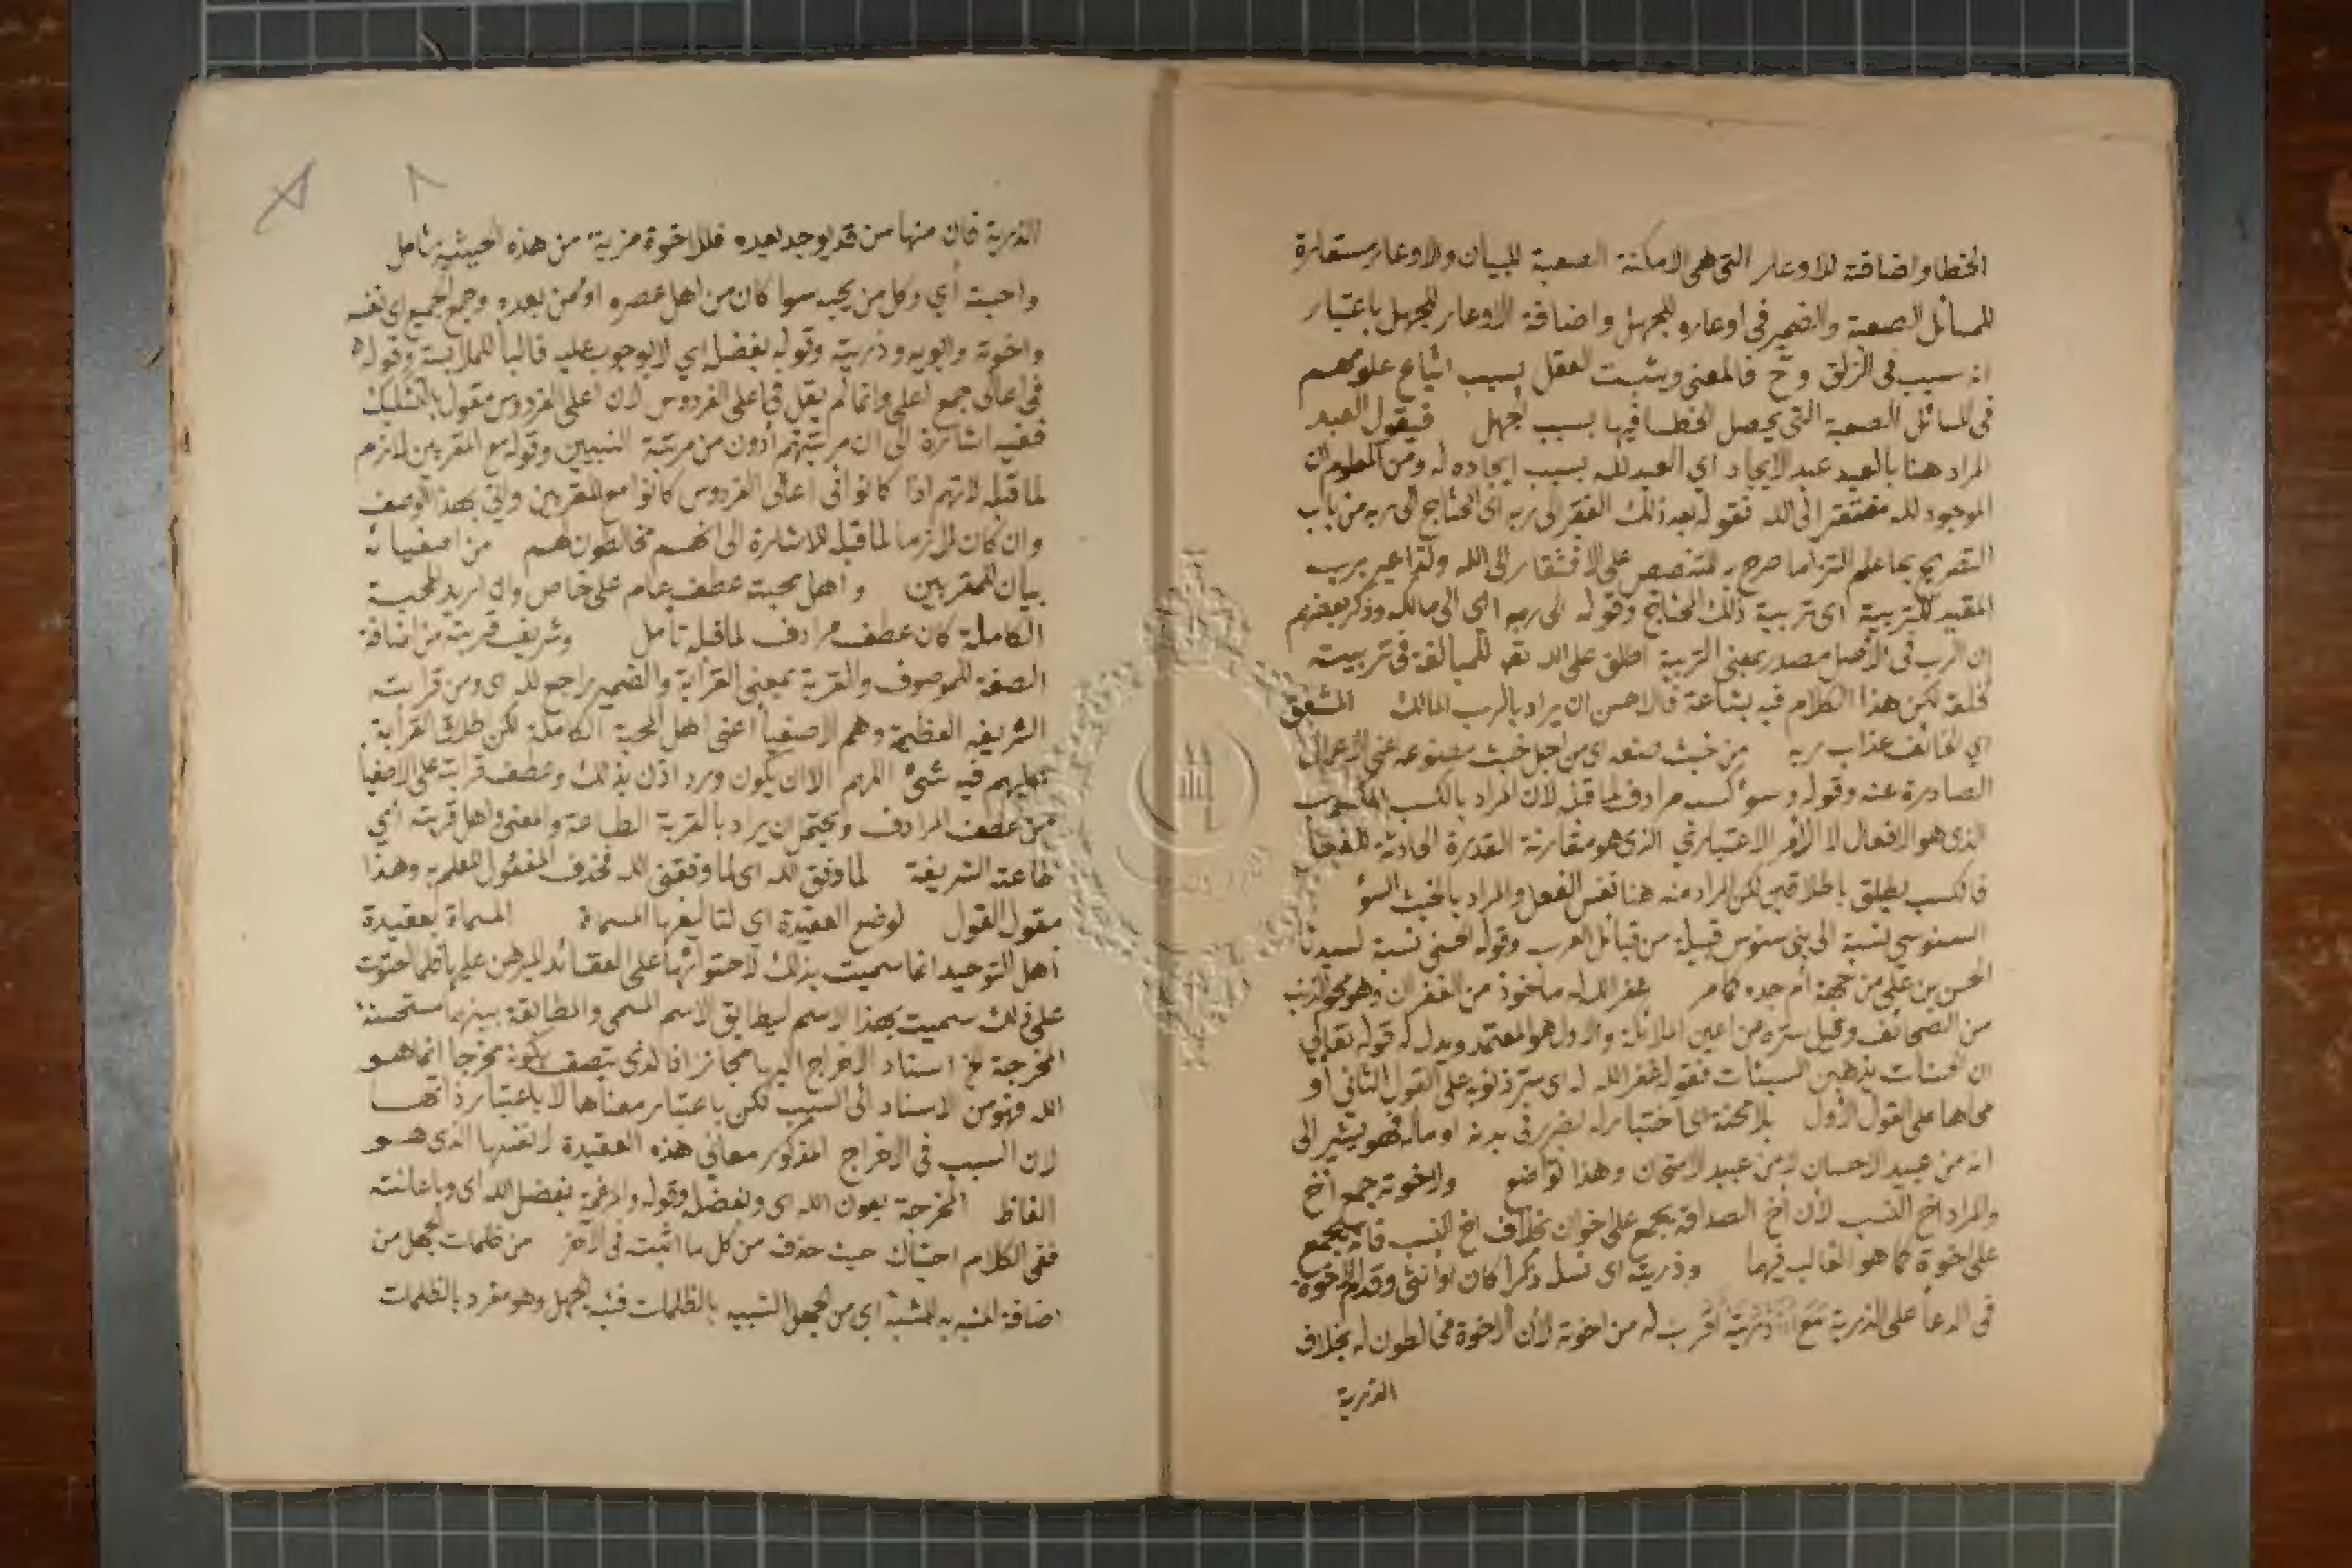 الخطا واضافته للاوعار التى هى الامكنة الصعبة للبيان والاوعار مستعارة
للمسائل الصعبة والضمير فى اوعاره للجهل واضافة الاوعار للجهل باعتبار
انه سبب فى الزلق وح فالمعنى ويثبت العقل بسبب اتباع علومهم
فى المسائل الصعبة التى يحصل الخطا فيها بسبب الجهل فيقول العبد
المراد هنا بالعبد عبد الايجاد اي العبد لله بسبب ايجاده له ومن المعلوم ان
الموجود لله مفتقر الى الله فقوله بعد ذلك الفقر الى ربه اى المحتاج الى ربه من باب
التصريح بما علم التزاما صرح به للتنصيص على الافتقار الى الله ولتعبير برب
المقيد للتربية اى تربية ذلك المحتاج وقوله الى ربه اى الى مالكه وذكر بعضهم
ان الرب فى الاصل مصدر بمعنى التربية اطلق على الله تعالى للمبالغة فى تربيته
لخلقه لكن هذا الكلام فيه بشاعة فالاحسن ان يراد بالرب المالك المشفق
اي الخائف عذاب ربه من خبث صنعه اى من اجل خبث مصنوعه عنى الاعمال
الصادرة عنه وقوله وسوء كسبه مرادف لما قبله لان المراد بالكسب المكسوب
الذى هو الافعال لا الامر الاعتباري الذى هو مقارنة القدرة الحادثة للفعل
فالكسب يطلق باطلاقين لكن المراد منه هنا نفس الفعل والمراد بالخبث السؤ
السنوسي نسبة الى بنى سنوس قبيلة من قبائل العرب وقوله الحسنى نسبة لسيدنا
الحسن بن علي من جهة ام جده كما مر غفر الله له ماخوذ من الغفران وهو محو الذنب
من الصحائف وقيل ستره من اعين الملائكة والاول هو المعتمد ويدل له قوله تعالى
ان الحسنات يذهبن السيئات فقوله غفر الله له اى ستر ذنوبه على القول الثانى او
محاها على القول الاول بلا محنة اى اختبار له بضرر فى بدنه او ماله فهو يشير الى
انه من عبيد الاحسان لا من عبيد الامتحان وهذا تواضع والاخوته جمع أخ
والمراد اخ النسب لأن أخ الصداقة يجمع على اخوان بخلاف اخ النسب فانه يجمع
على اخوة كما هو الغالب فيهما وذريته اى نسله ذكرا كان او انثى وقدم الاخوة
فى الدعا على الذرية مع ان ذريته اقرب له من اخوته لأن الاخوة مخالطون له بخلاف
الذرية
الذرية فان منها من قد يوجد بعده فللاخوة مزية من هذه الحيثية تامل
واحبته أي وكل من يحبه سوا كان من اهل عصره او ممن بعده وجمع الجميع اى نفسه
واخوته وابويه وذريته وقوله بفضله اي لا بوجوب عليه فالبا للملابسة وقوله
فى اعالى جمع اعلى وانما لم يقل فى اعلى الفردوس لان اعلى الفردوس مقول بالتشكيك
ففيه اشارة الى ان مرتبتهم أدون من مرتبة النبيين وقوله مع المقربين لازم
لما قبله لانهم اذا كانوا فى اعالى الفردوس كانوا مع المقربين واتى بهذا الوصف
وان كان لازما لما قبله للاشارة الى انهم مخالطون لهم من اصفيائه
بيان للمقربين واهل محبته عطف عام على خاص وان اريد المحبة
الكاملة كان عطف مرادف لما قبله تأمل وشريف قربته من اضافة
الصفة للموصوف والقربة بمعنى القرابة والضمير راجع لله اى ومن قرابته
الشريفة العظيمة وهم الاصفيا أعنى اهل المحبة الكاملة لكن اطلاق القرابة
عليهم فيه شئ اللهم الا ان يكون ورد اذن بذلك وعطف قرابته على الاصفيا
من عطف المرادف ويحتمل ان يراد بالقربة الطاعة والمعنى واهل قربته أي
طاعته الشريفة لما وفق الله اى لما وفقنى الله فحذف المفعول للعلم به وهذا
مقول القول لوضع العقيدة اى لتاليفها المسماة المسماة بعقيدة
أهل التوحيد انما سميت بذلك لاحتوائها على العقائد المبرهن عليها فلما احتوت
على ذلك سميت بهذا الاسم ليطابق الاسم المسمى والمطابقة بينهما مستحسنة
المخرجة الخ اسناد الاخراج اليها مجاز اذ الذى يتصف بكونه مخرجا انما هو
الله فهو من الاسناد الى السبب لكن باعتبار معناها لا باعتبار ذاتها
لان السبب فى الاخراج المذكور معاني هذه العقيدة لا نفسها الذى هو
الفاظ المخرجة بعون الله اى وبفضله وقوله والمرغمة بفضل الله اى وباعانته
ففى الكلام احتباك حيث حذف من كل ما اثبت فى الاخر من ظلمات الجهل من
اضافة المشبه به للمشبه اي من الجهل الشبيه بالظلمات فشبه الجهل وهو مفرد بالظلمات